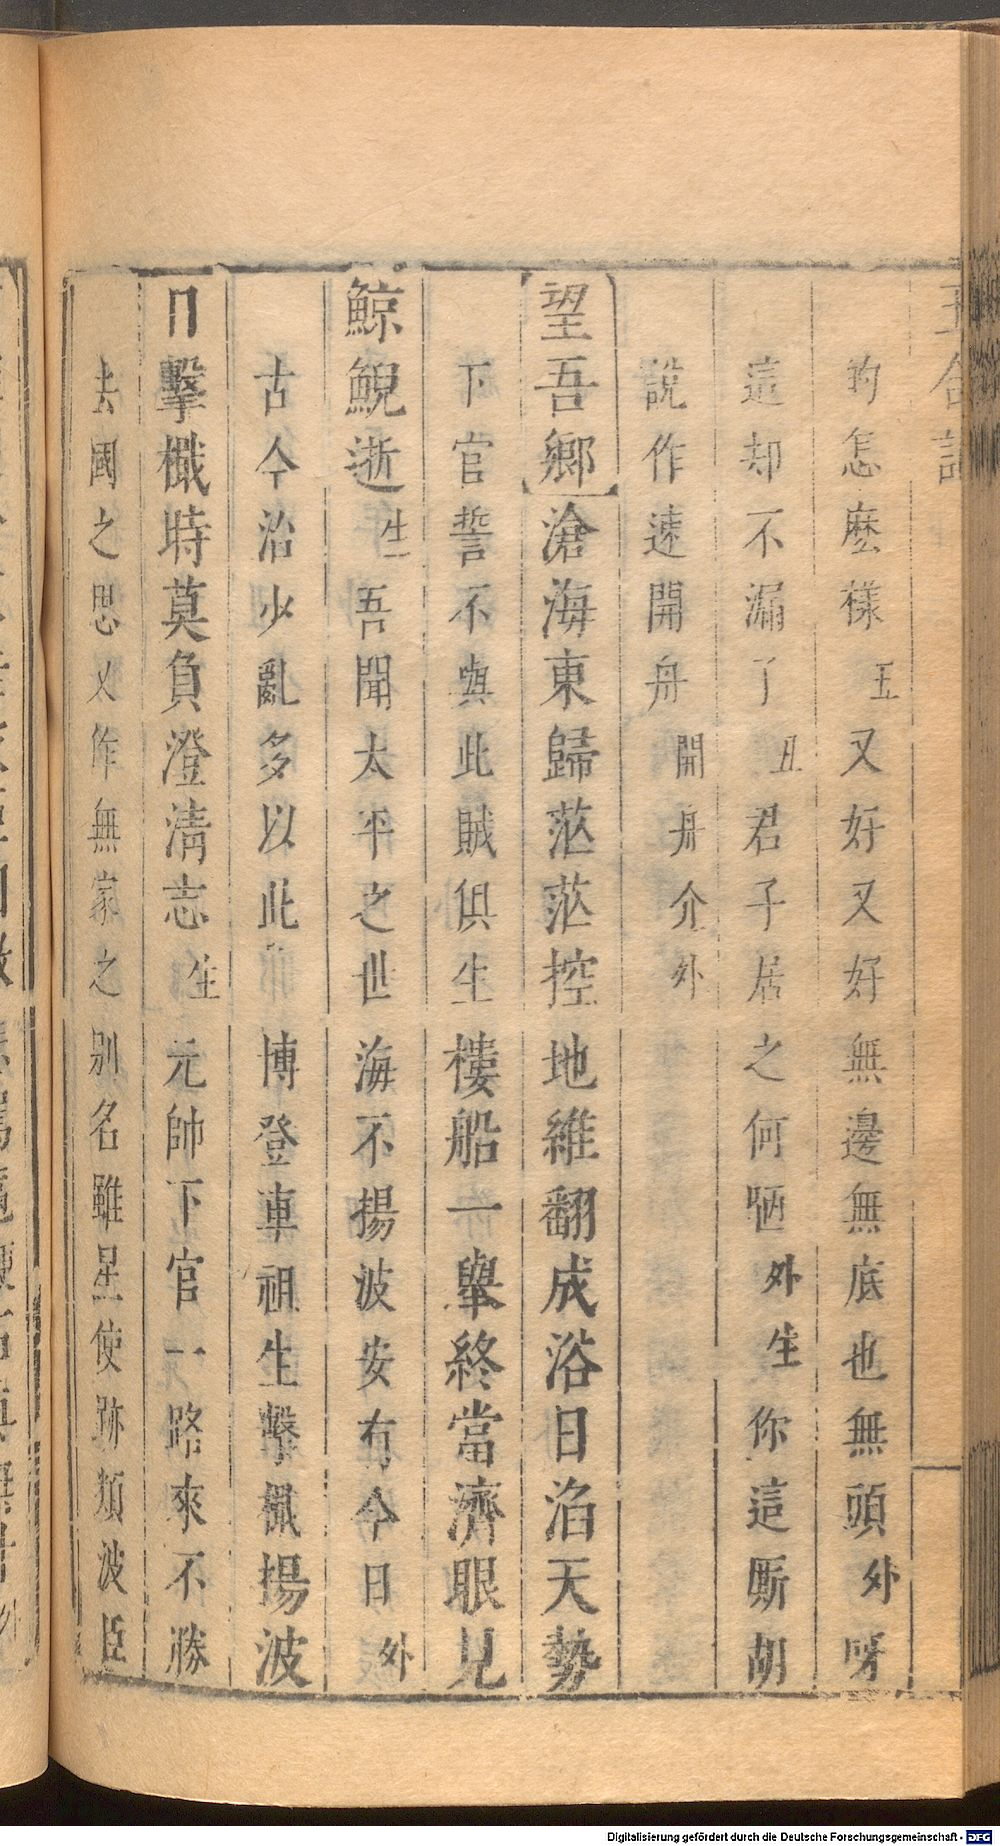 玉合記
的怎麽樣五又好又好無邊無底也無頭外呀
這却不漏了丑君子居之何陋外生你這厮胡
說作速開舟開舟介外
望吾鄉滄海東歸茫茫控地維翻成浴日滔天勢
下官誓不與此賊俱生樓船一舉終當濟眼見
鯨鯢逝生吾聞太平之世海不揚波安有今日外
古今治少亂多以此博登車祖生擊檝揚波
擊檝時莫負澄清志生元帥下官一路來不勝
去國之思又作無家之別名雖星使跡類波臣
Digitalisierung gefördert durch die Deutsche Forschungsgemeinschaft - DFG